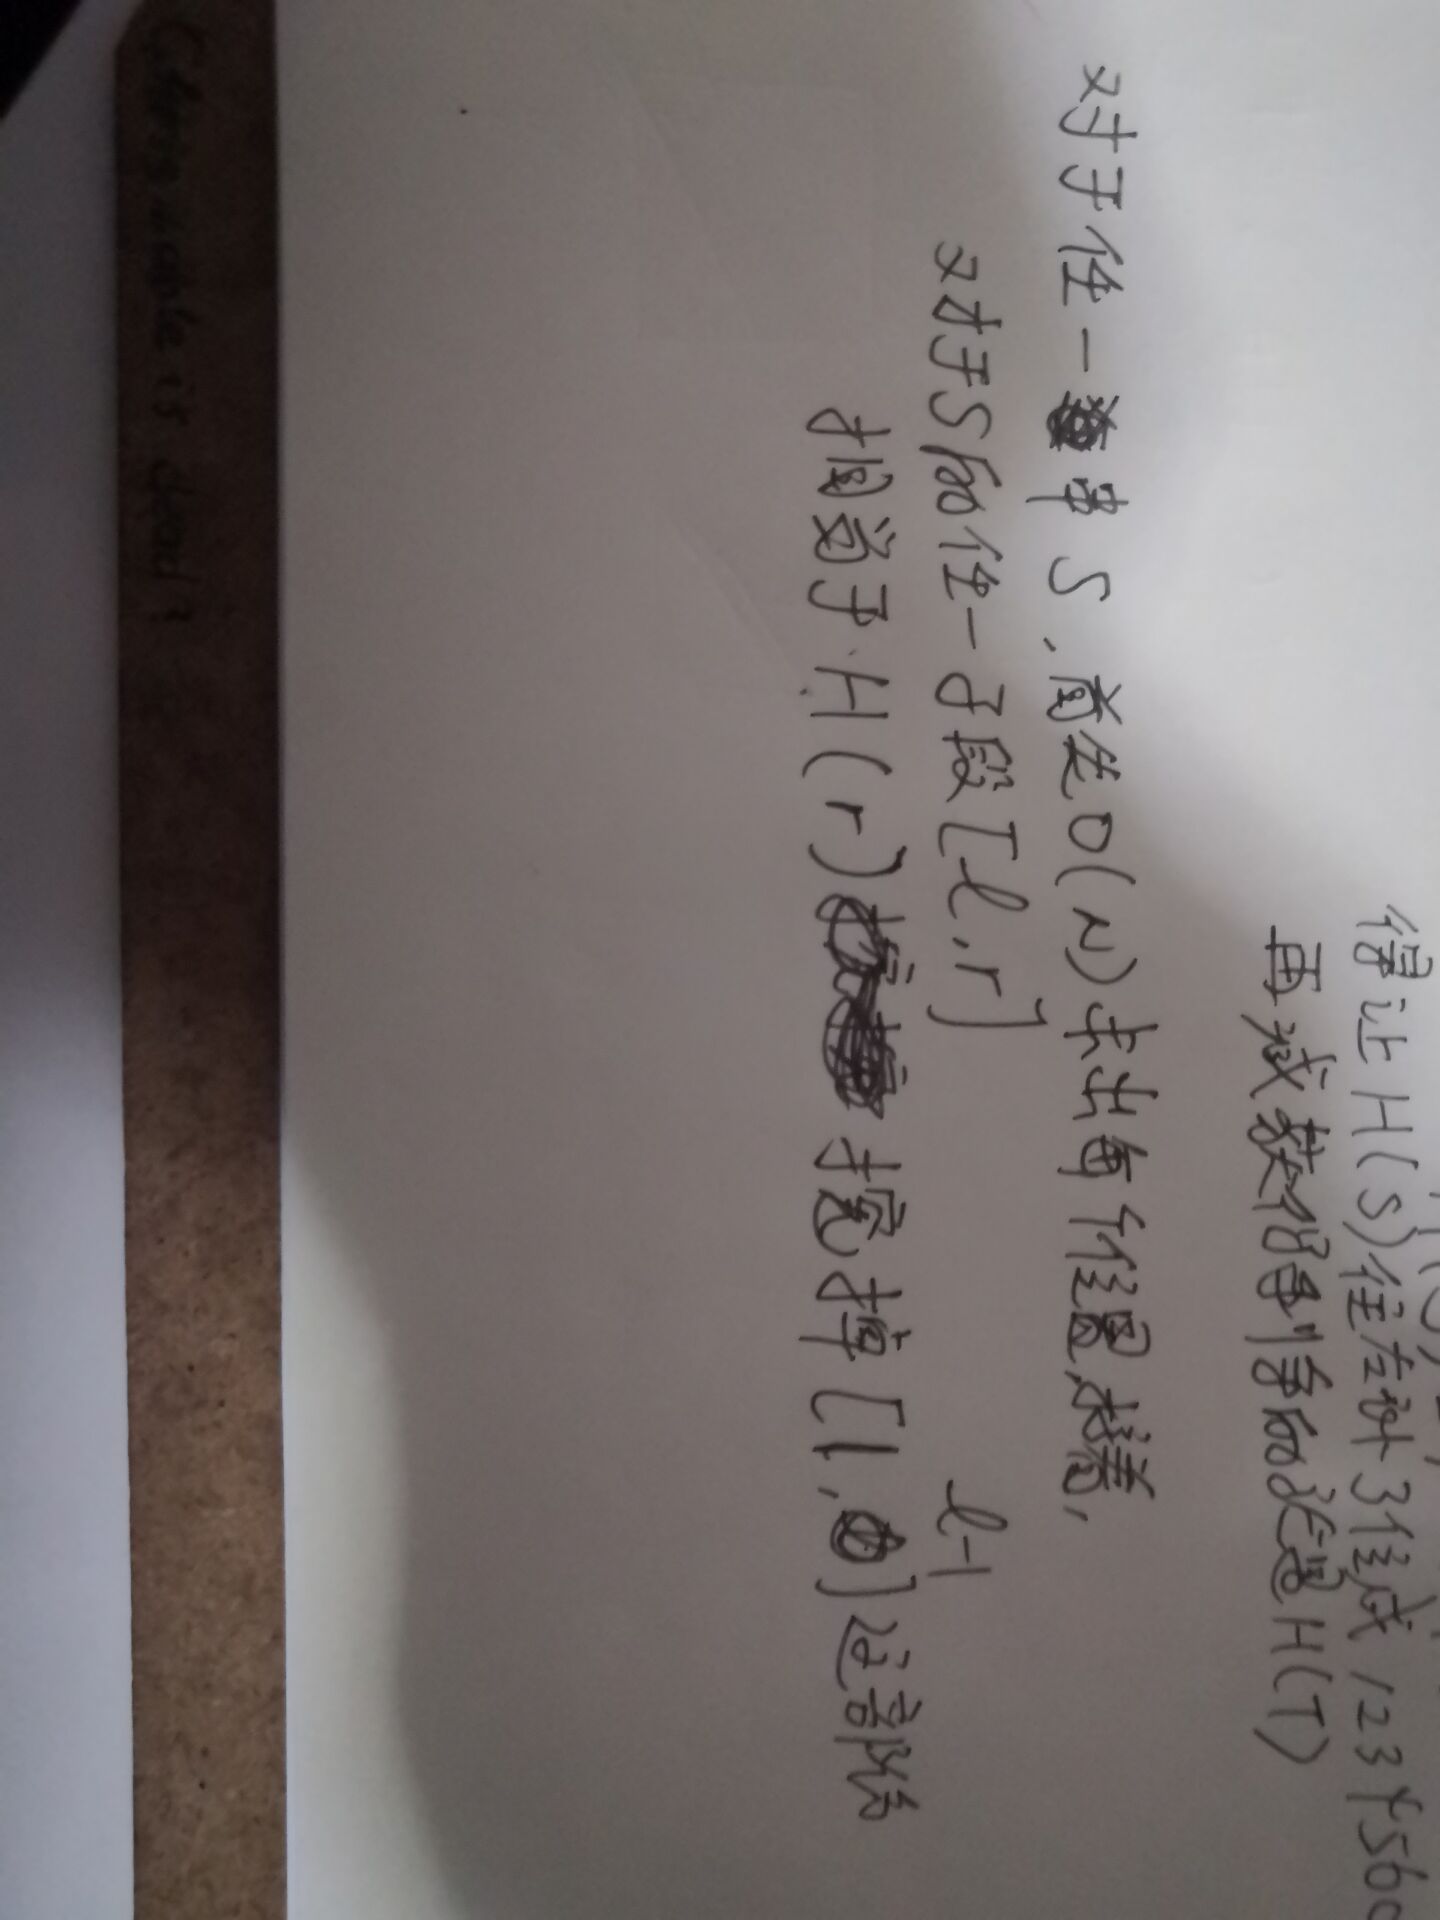 得让H(S)往左补3位成123456
再减获得剩余的就是H(T)
对于任一串S,首先O(N)求出每个位置,接着,
对于S的任一子段[l,r]
相当于H(r)挖掉[1,l-1]这部份
is dead?